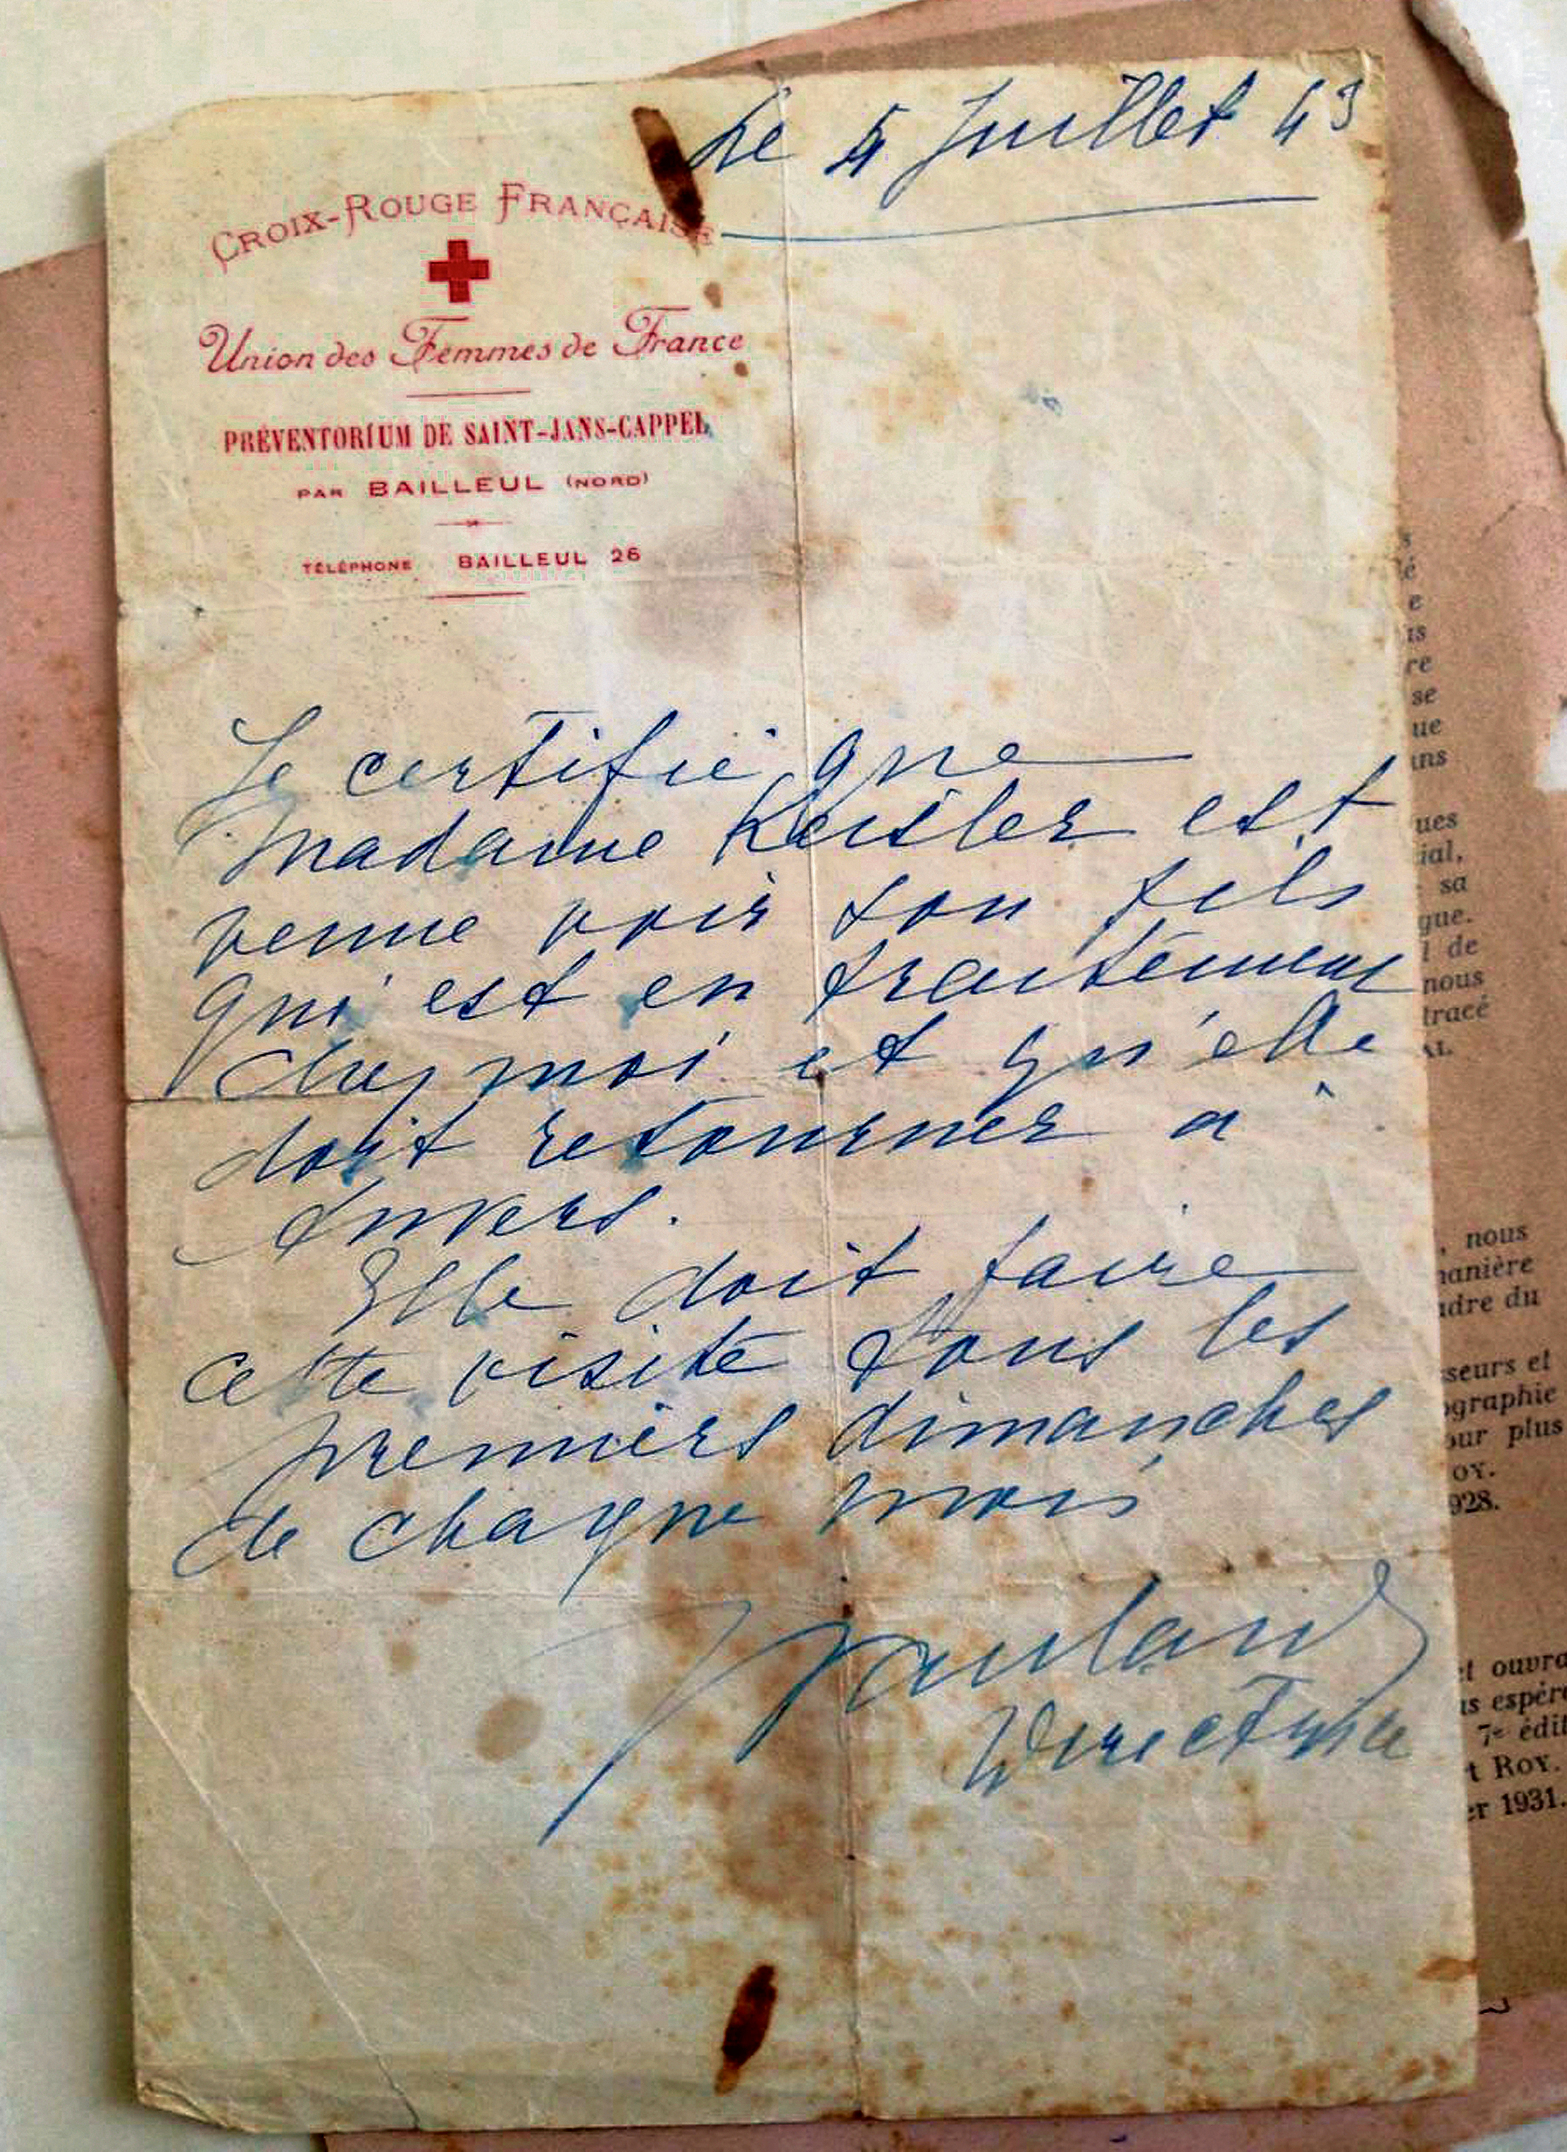 Le 4 Juillet 43
CROIX-ROUGE FRANÇAISE
Union des Femmes de France
PRÉVENTORIUM DE SAINT-JANS-CAPPEL
PAR BAILLEUL (NORD)
TÉLÉPHONE BAILLEUL 26
Je certifie que
Madame Keisler est
venue voir son fils
qui est en traitement
chez moi et qu'elle
doit retourner a
Anvers.
Elle doit faire
cette visite tous les
premiers dimanches
de chaque mois
Directrice
s
é
e
us
re
se
ue
ans
ques
ial,
sa
gue.
l de
nous
tracé
AL
, nous
manière
adre du
sseurs et
ographie
our plus
OY.
928.
et ouvra
us espére
7e édit
t ROY.
er 1931.